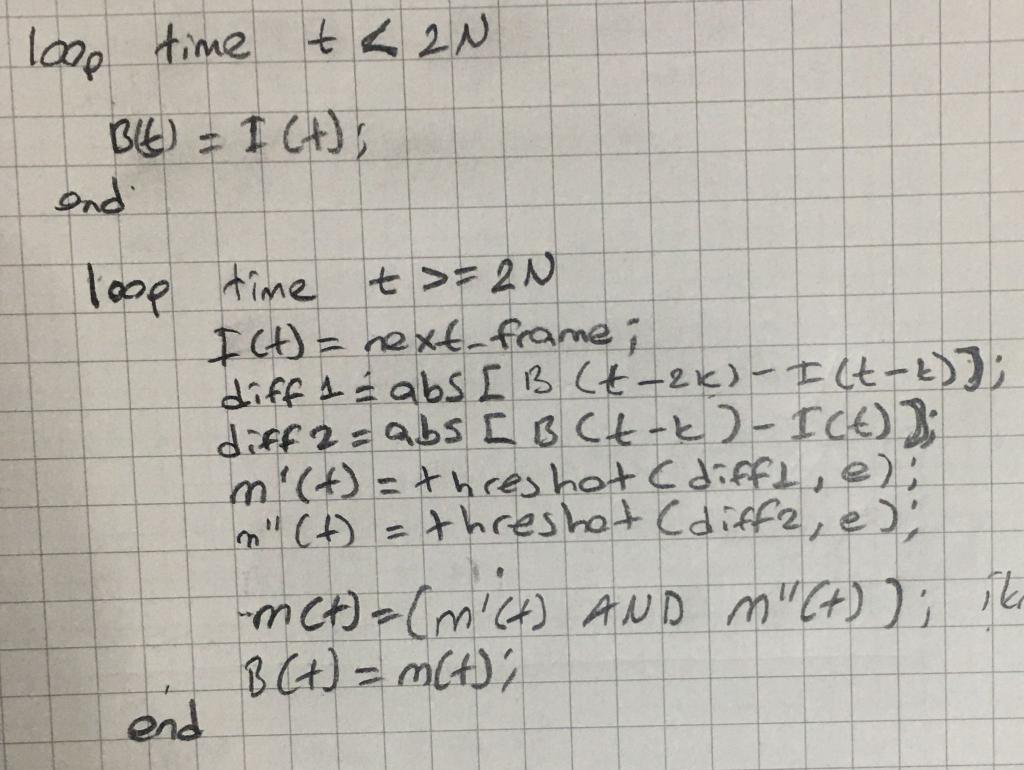 loop time t < 2N
B(t) = I(t);
end
loop time t >= 2N
I(t) = next_frame;
diff1 = abs[B(t-2k) - I(t-k)];
diff2 = abs[B(t-k) - I(t)];
m'(t) = threshot(diff1, e);
m''(t) = threshot(diff2, e);
m(t) = (m'(t) AND m''(t));
B(t) = m(t);
end